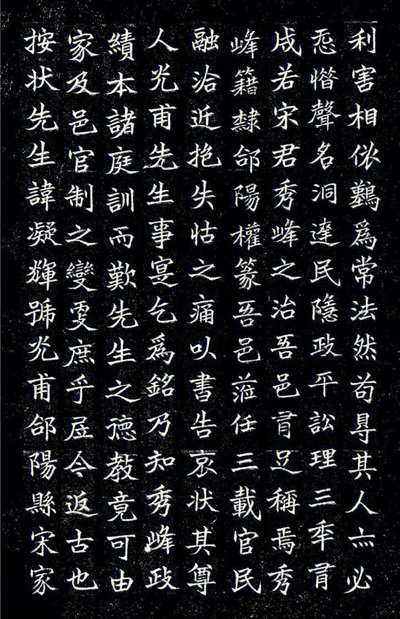 利害相依難爲常法然苟㝵其人亦必
㤅惜聲名洞達民隱政平訟理三年有
成若宋君秀峰之治吾邑有足稱焉秀
峰籍隸郃陽權篆吾邑蒞任三載官民
融洽近抱失怙之痛以書告哀狀其尊
人光甫先生事寔乞爲銘乃知秀峰政
績本諸庭訓而歎先生之德教竟可由
家及邑官制之變更庶乎居今返古也
按狀先生諱凝輝號光甫郃陽縣宋家